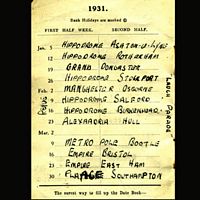 1931.
Bank Holidays are marked
FIRST HALF WEEK. SECOND HALF.
Jan. 5 HIPPODROME ASHTON-U-LYNE
12 HIPPODROME ROTHERHAM
19 GRAND DONCASTER
26 HIPPODROME STOCKPORT
Feb. 2 MANCHESTER OSBORNE
9 HIPPODROME SALFORD
16 HIPPODROME BIRKENHEAD
23 ALEXANDRA HULL
Mar. 2
9 METROPOLE BOOTLE
16 EMPIRE BRISTOL
23 EMPIRE EAST HAM
30 PALACE SOUTHAMPTON
PARADE
The surest way to fill up the Date Book—